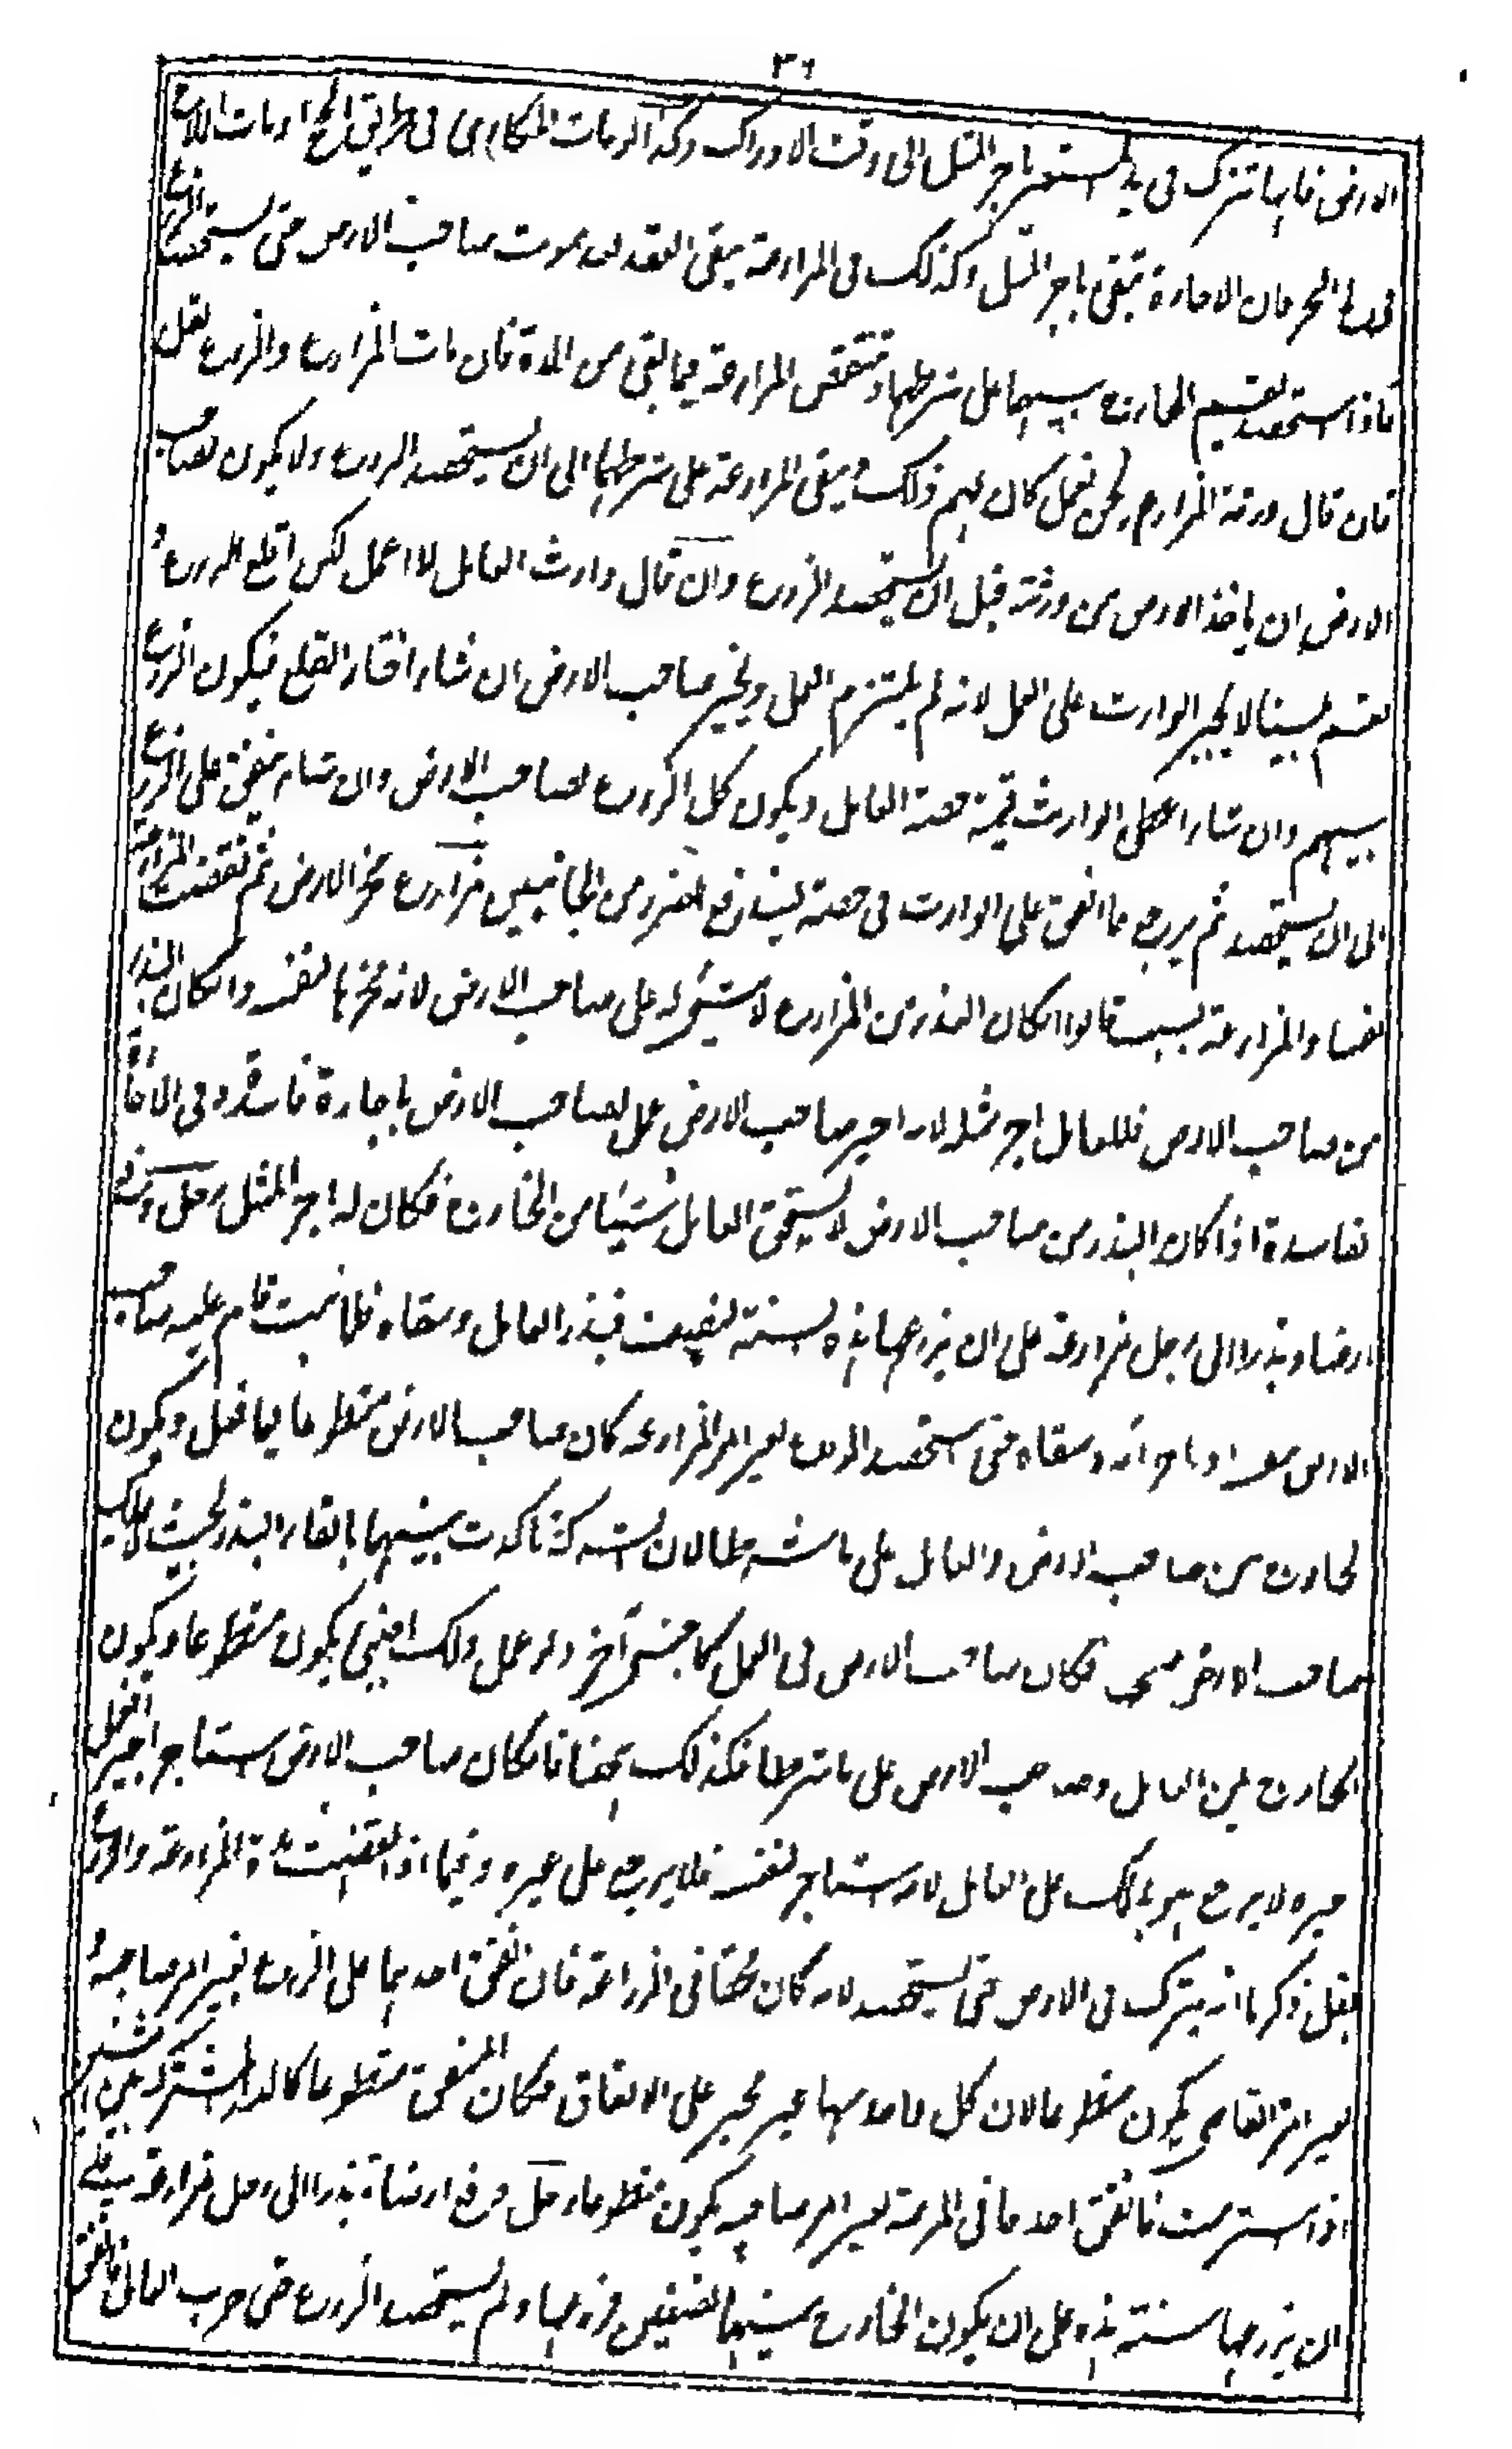 ٣٦
الارض فانها تترك فى يد المستعير باجر المثل الى وقت الادراك وكذا لو مات المكارى فى طريق الحج او مات الملاح
البحر فان الاجارة تبقى باجر المثل وكذلك فى المزارعة يبقى العقد بعد موت صاحب الارض حتى يستحصد الزرع
فاذا استحصد يقسم الخارج بينهما على شرطهما وتنتقض المزارعة فيما بقى من المدة فان مات المزارع والزرع بقل
فان قال ورثة المزارع نحن نعمل كان لهم ذلك ويبقى المزارعة على شرطهما الى ان يستحصد الزرع ولا يكون لصاحب
الارض ان ياخذ الارض من ورثته قبل ان يستحصد الزرع وان قال وارث العامل لا اعمل لكن اقلع الزرع و
يقسم بيننا لا يجبر الوارث على العمل لانه لم يلتزم العمل ويخير صاحب الارض ان شاء اختار القلع فيكون الزرع
بينهم وان شاء اعطى الوارث قيمة حصة العامل ويكون كل الزرع لصاحب الارض وان شاء ينفق على الزرع
الى ان يستحصد ثم يرجع بما انفق على الوارث فى حصته ليندفع الضرر من الجانبين مزارع نخر الارض ثم نقضت المزارعة
المزارعة بسبب قالوا ان كان البذر من المزارع لا شئ له على صاحب الارض لانه نخرها لنفسه وان كان البذر
من صاحب الارض فللعامل اجر مثله لانه اجير صاحب الارض عمل لصاحب الارض باجارة فاسدة وفى الاجارة
الفاسدة اذا كان البذر من صاحب الارض لا يستحق العامل شيئا من الخارج فكان له اجر المثل رجل دفع
ارضا وبذرا الى رجل مزارعة على ان يزرعها هذه السنة بالنصف فبذر العامل وسقاه فلما نبت قام عليه صاحب
الارض بنفسه او باجرائه وسقاه حتى استحصد الزرع بغير امر المزارع كان صاحب الارض متطوعا فيما فعل ويكون
الخارج بين صاحب الارض والعامل على ما شرطا لان الشركة تاكدت بينهما بالقاء البذر بحيث لا يملك
صاحب الارض فسخ فكان صاحب الارض فى العمل كاجنبى آخر ولو عمل ذلك اجنبى يكون متطوعا ويكون
الخارج بين العامل وصاحب الارض على ما شرطا فكذلك ههنا فان كان صاحب الارض استاجر اجير افعل
اجيره لا يرجع هو بذلك على العامل لانه استاجر لنفسه فلا يرجع على غيره وفيما اذا انقضت مدة المزارعة والزرع
بقل ذكرنا انه يترك فى الارض حتى يستحصد لانه كان محقا فى الزراعة فان انفق احدهما على الزرع بغير امر صاحبه و
بغير امر القاضى يكون متطوعا لان كل واحد منهما غير مجبر على الانفاق فكان المنفق متطوعا كالدار المشتركة بين اثنين
اذا استرمت فانفق احدهما فى المرمة بغير امر صاحبه يكون متطوعا رجل دفع ارضا وبذرا الى رجل مزارعة على
ان يزرعها سنته هذه على ان يكون الخارج بينهما نصفين فزرعها ولم يستحصد الزرع حتى هرب العامل فانفق